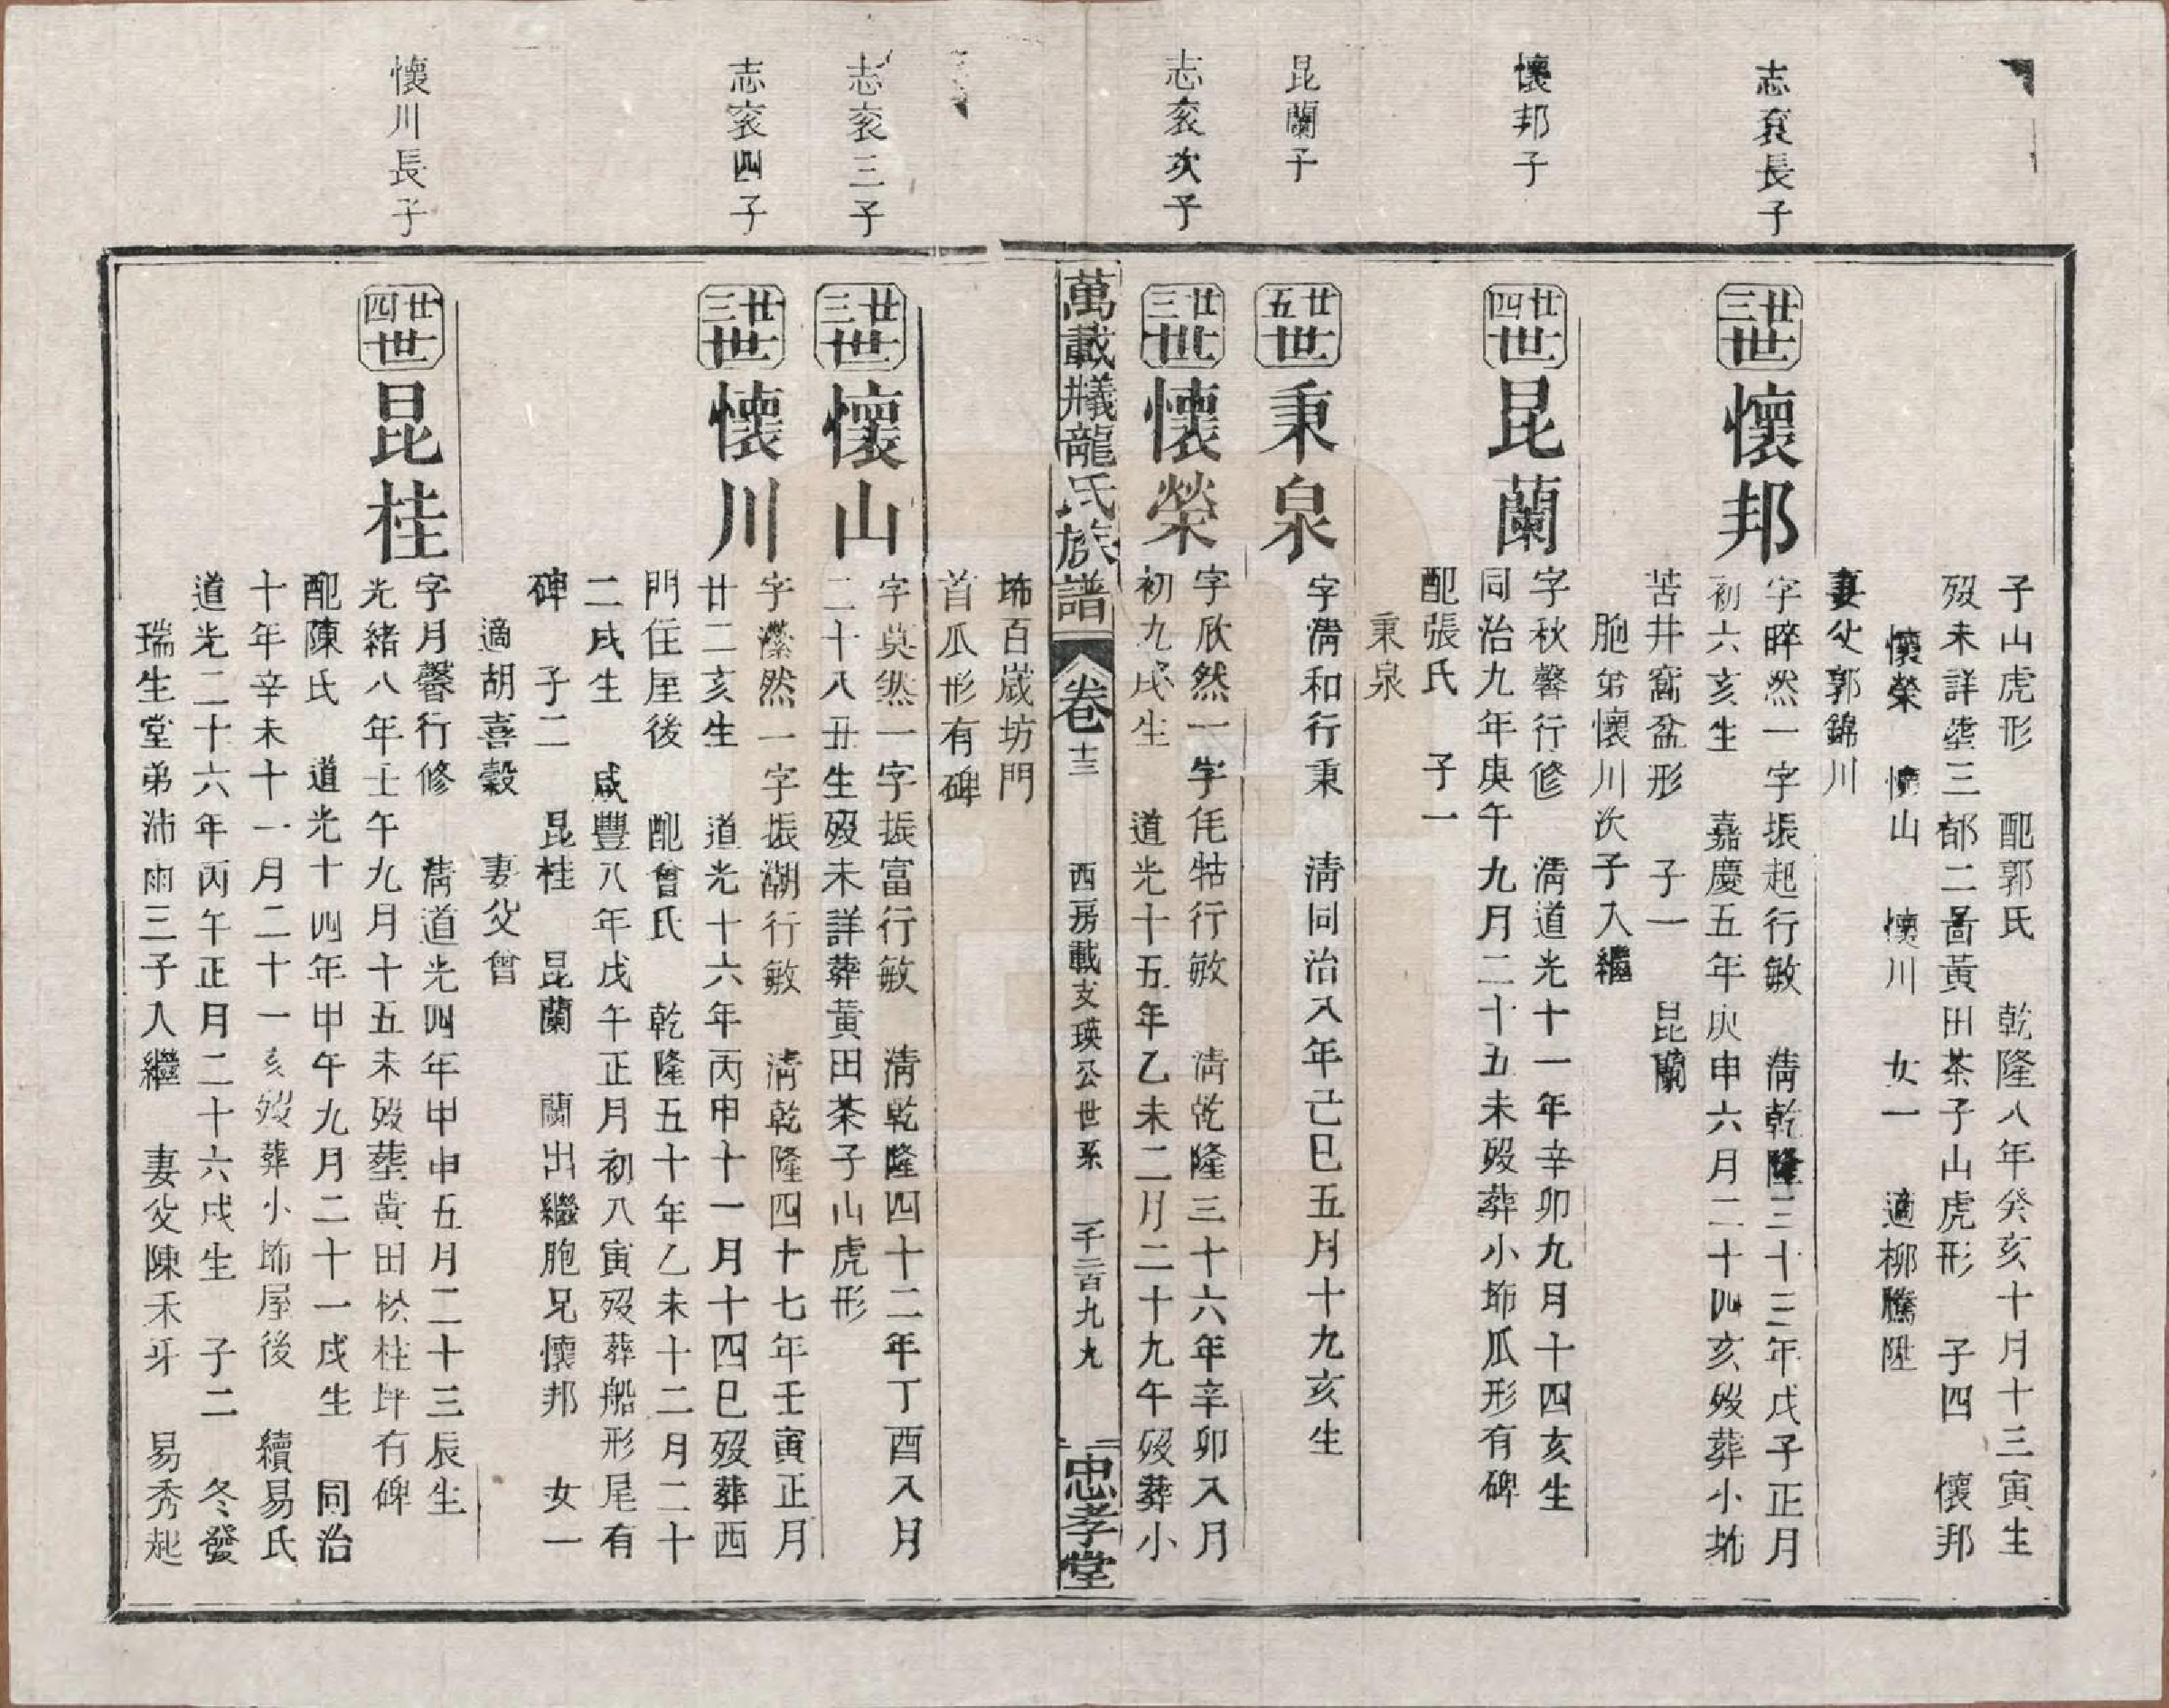 子山虎形　配郭氏　乾隆八年癸亥十月十三寅生
歿未詳塟三都二啚黃田茶子山虎形　子四　懷邦
懷榮　懷山　懷川　女一　適柳騰陞
妻父郭錦川
志袞長子
廿三世
懷邦
字睟然一字振起行敏　清乾隆三十三年戊子正月
初六亥生　嘉慶五年庚申六月二十四亥歿葬小㘵
苦井窩盆形　子一　昆蘭
胞弟懷川次子入繼
懷邦子
廿四世
昆蘭
字秋馨行修　清道光十一年辛卯九月十四亥生
同治九年庚午九月二十五未歿葬小㘵瓜形有碑
配張氏　子一
秉泉
昆蘭子
廿五世
秉泉
字清和行秉　清同治八年己巳五月十九亥生
志袞次子
廿三世
懷榮
字欣然一字牦牯行敏　清乾隆三十六年辛卯八月
初九戌生　道光十五年乙未二月二十九午歿葬小
萬載㸢龍氏族譜
卷十三
西房載支瑛公世系
一千二百九九
忠孝堂
㘵百歲坊門
首瓜形有碑
志袞三子
廿三世
懷山
字奠然一字振富行敏　清乾隆四十二年丁酉八月
二十八丑生歿未詳葬黃田茶子山虎形
志袞四子
廿三世
懷川
字瀠然一字振湖行敏　清乾隆四十七年壬寅正月
廿二亥生　道光十六年丙申十一月十四巳歿葬西
門住屋後　配曾氏　乾隆五十年乙未十二月二十
二戌生　咸豐八年戊午正月初八寅歿葬船形尾有
碑　子二　昆桂　昆蘭　蘭出繼胞兄懷邦　女一
適胡喜穀　妻父曾
懷川長子
廿四世
昆桂
字月馨行修　清道光四年甲申五月二十三辰生
光緒八年壬午九月十五未歿葬黃田松柱坪有碑
配陳氏　道光十四年甲午九月二十一戌生　同治
十年辛未十一月二十一亥歿葬小㘵屋後　續易氏
道光二十六年丙午正月二十六戌生　子二　冬發
瑞生堂弟沛雨三子入繼　妻父陳禾牙　易秀起